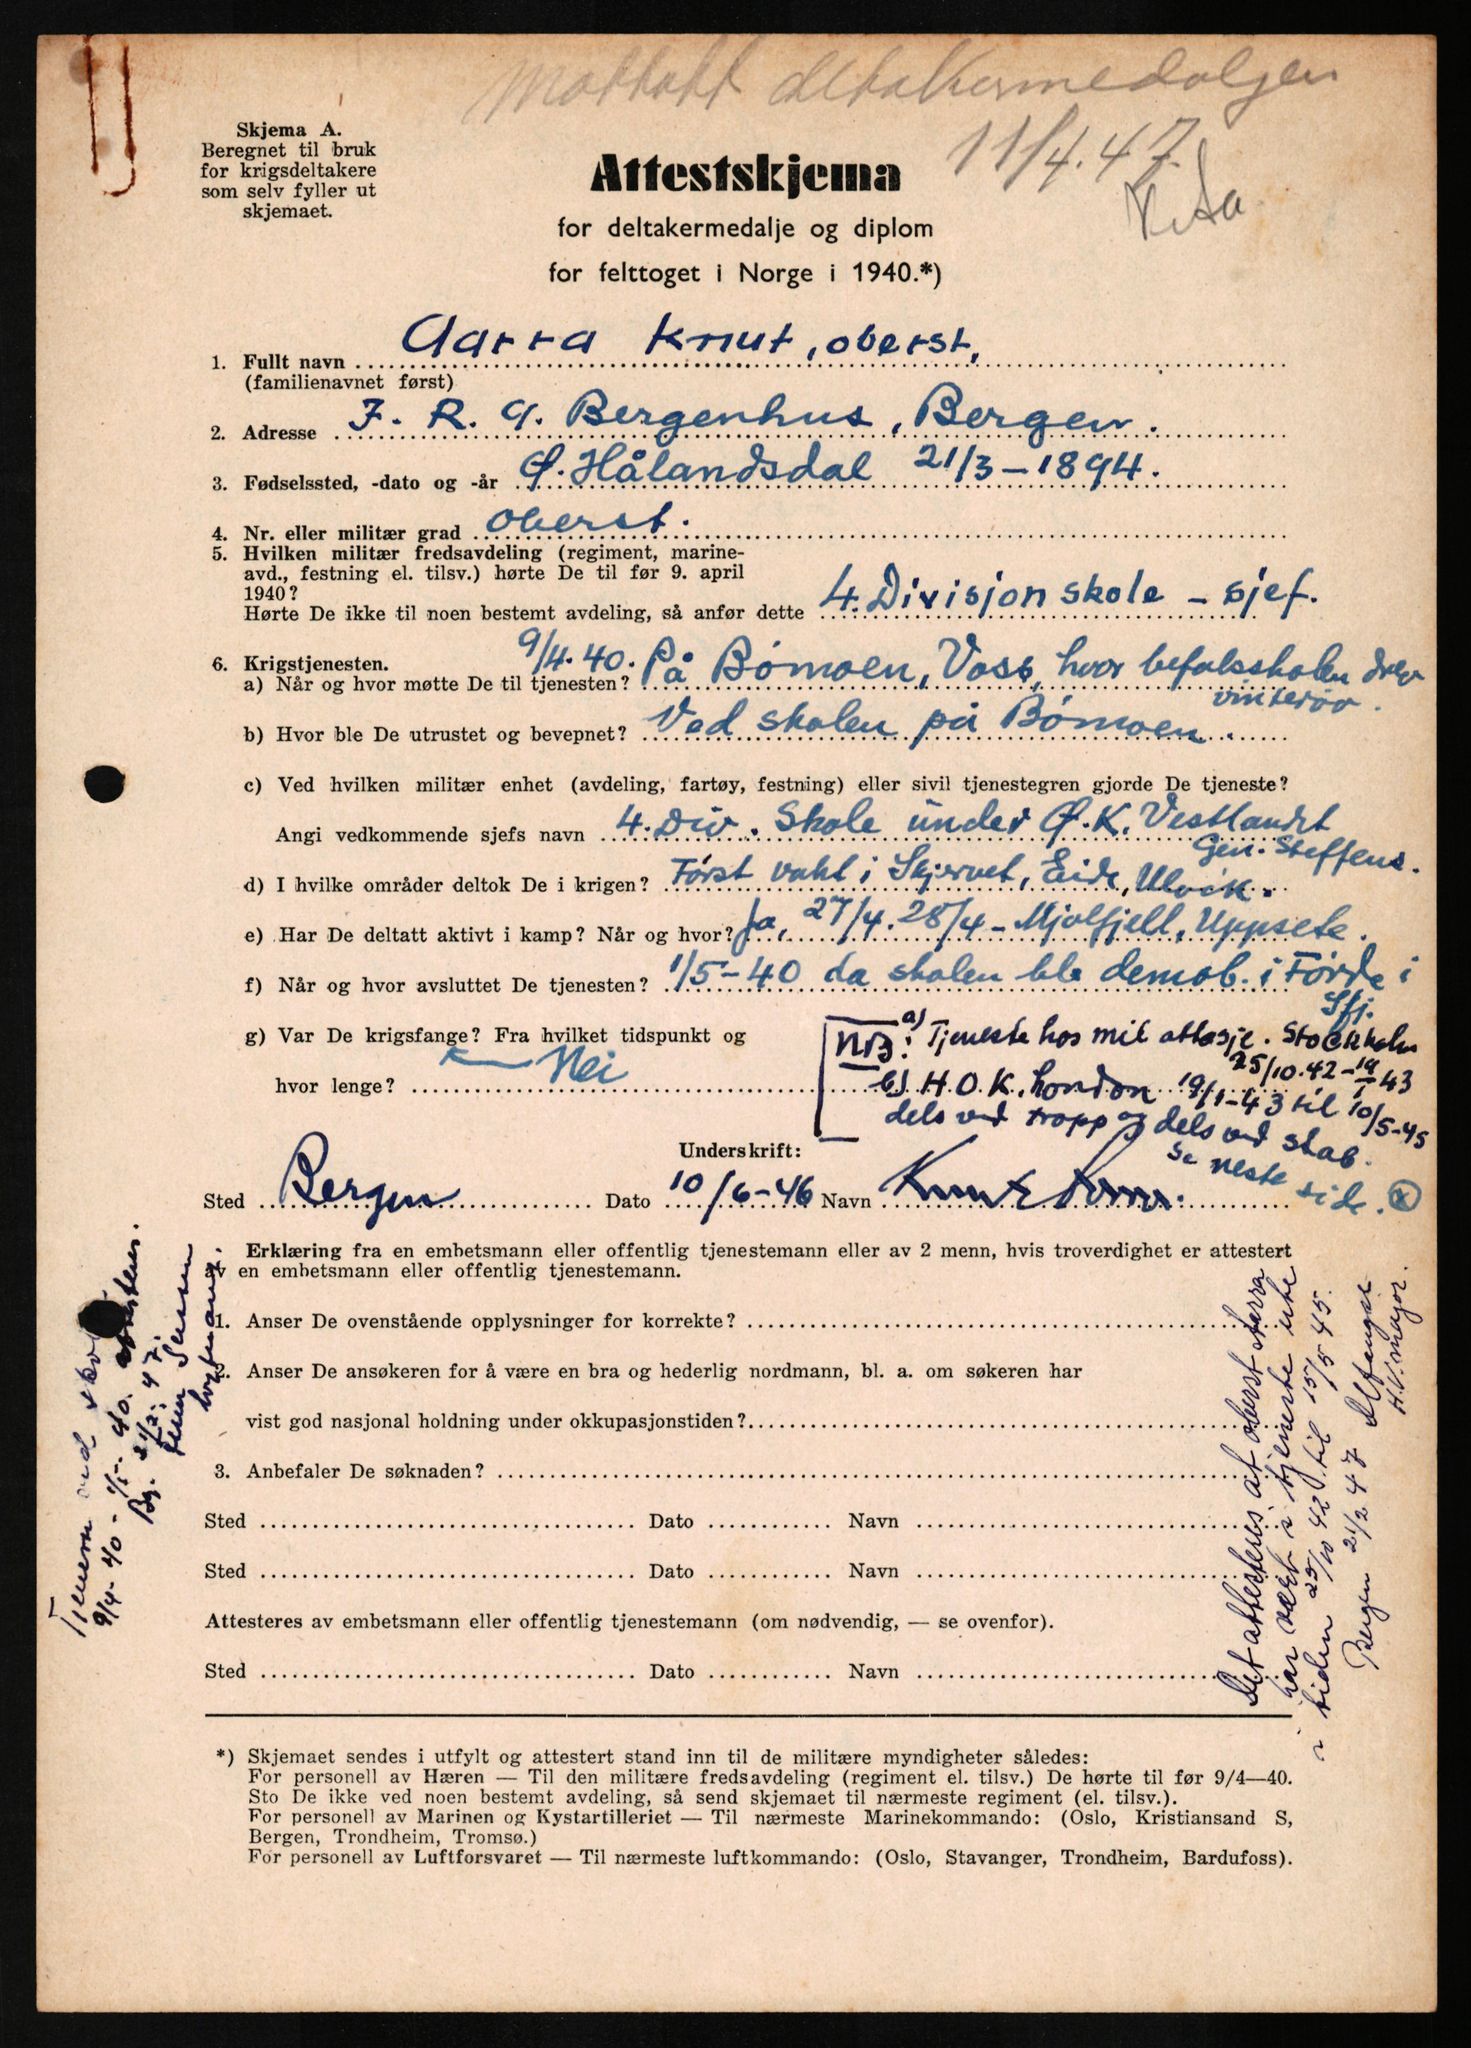 Mottatt deltakermedaljen
11/4.47.
K. Aa
Skjema A.
Beregnet til bruk
for krigsdeltakere
som selv fyller ut
skjemaet.
Attestskjema
for deltakermedalje og diplom
for felttoget i Norge i 1940.*)
1. Fullt navn Aarra Knut, oberst,
(familienavnet først)
2. Adresse I. R. 9. Bergenhus, Bergen.
3. Fødselssted, -dato og -år Ø. Hålandsdal 21/3-1894.
4. Nr. eller militær grad oberst.
5. Hvilken militær fredsavdeling (regiment, marine-
avd., festning el. tilsv.) hørte De til før 9. april
1940?
Hørte De ikke til noen bestemt avdeling, så anfør dette 4. Divisjon skole - sjef.
6. Krigstjenesten.
a) Når og hvor møtte De til tjenesten? 9/4.40. På Bømoen, Voss, hvor befalsskolen drev
vinterøv.
b) Hvor ble De utrustet og bevepnet? Ved skolen på Bømoen.
c) Ved hvilken militær enhet (avdeling, fartøy, festning) eller sivil tjenestegren gjorde De tjeneste?
Angi vedkommende sjefs navn 4. Div. Skole under Ø.K. Vestlandet
Gen. Steffens.
d) I hvilke områder deltok De i krigen? Først vakt i Skjervet, Eide, Ulvik.
e) Har De deltatt aktivt i kamp? Når og hvor? Ja, 27/4. 28/4 - Mjølfjell, Uppsete.
f) Når og hvor avsluttet De tjenesten? 1/5-40 da skolen ble demob. i Førde i
Sfj.
g) Var De krigsfange? Fra hvilket tidspunkt og
hvor lenge? Nei
NB: a) Tjeneste hos mil attasje. Stockholm
25/10.42-19/1 43
b) H.O.K. London 19/1-43 til 10/5-45
dels ved tropp og dels ved stab.
Se neste side. (x)
Underskrift:
Sted Bergen Dato 10/6-46 Navn Knut Aarra.
Erklæring fra en embetsmann eller offentlig tjenestemann eller av 2 menn, hvis troverdighet er attestert
av en embetsmann eller offentlig tjenestemann.
1. Anser De ovenstående opplysninger for korrekte?
2. Anser De ansøkeren for å være en bra og hederlig nordmann, bl. a. om søkeren har
vist god nasjonal holdning under okkupasjonstiden?
3. Anbefaler De søknaden?
Sted Dato Navn
Sted Dato Navn
Attesteres av embetsmann eller offentlig tjenestemann (om nødvendig, — se ovenfor).
Sted Dato Navn
Tjenem ved
9/4-40 - 1/5-40. attesteres.
Bg. 21/2. 47.
Jensen
kaptmann.
Det attesteres at oberst Aarra
har vært i tjeneste ute
i tiden 25/10 42 til 15/5 45.
Bergen 21/2 47
H.V. major.
*) Skjemaet sendes i utfylt og attestert stand inn til de militære myndigheter således:
For personell av Hæren — Til den militære fredsavdeling (regiment el. tilsv.) De hørte til før 9/4—40.
Sto De ikke ved noen bestemt avdeling, så send skjemaet til nærmeste regiment (el. tilsv.).
For personell av Marinen og Kystartilleriet — Til nærmeste Marinekommando: (Oslo, Kristiansand S,
Bergen, Trondheim, Tromsø.)
For personell av Luftforsvaret — Til nærmeste luftkommando: (Oslo, Stavanger, Trondheim, Bardufoss).